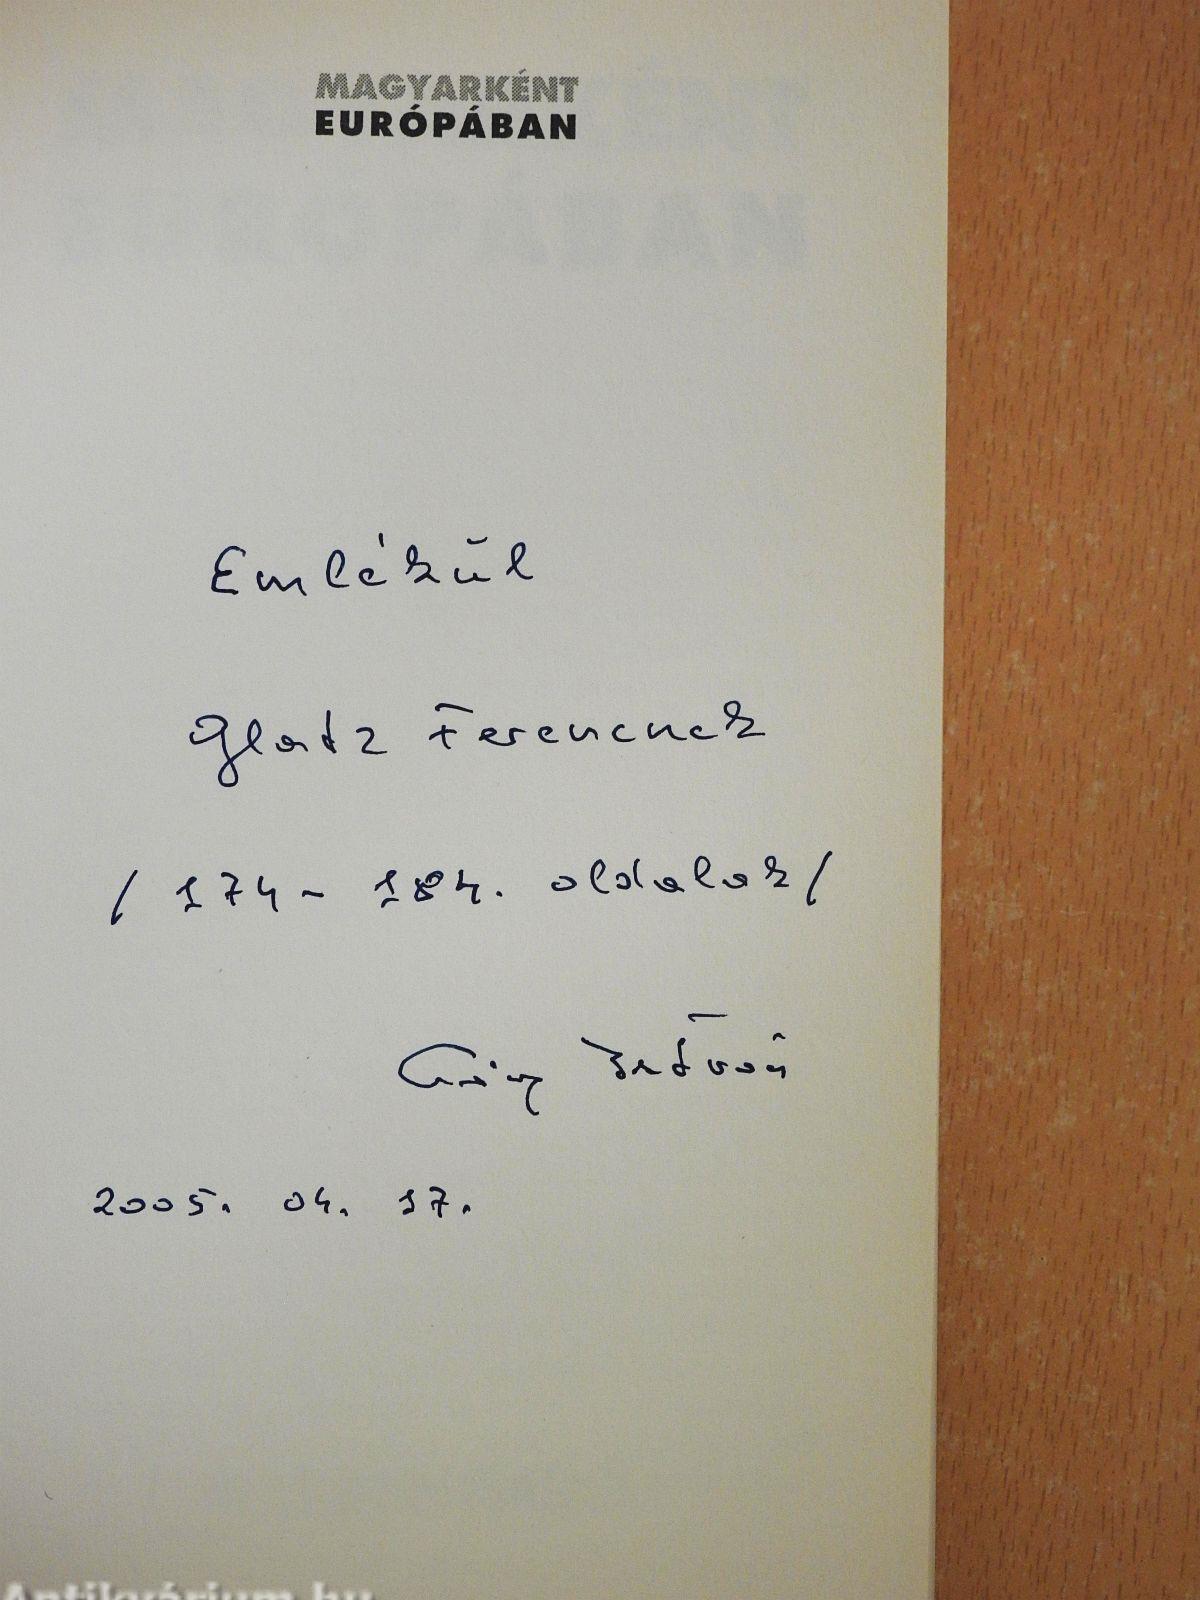 MAGYARKÉNT
EURÓPÁBAN
Emlékül
Glatz Ferencnek
/ 174 - 184. oldalak /
István
2005. 04. 17.
Antikvárium.hu